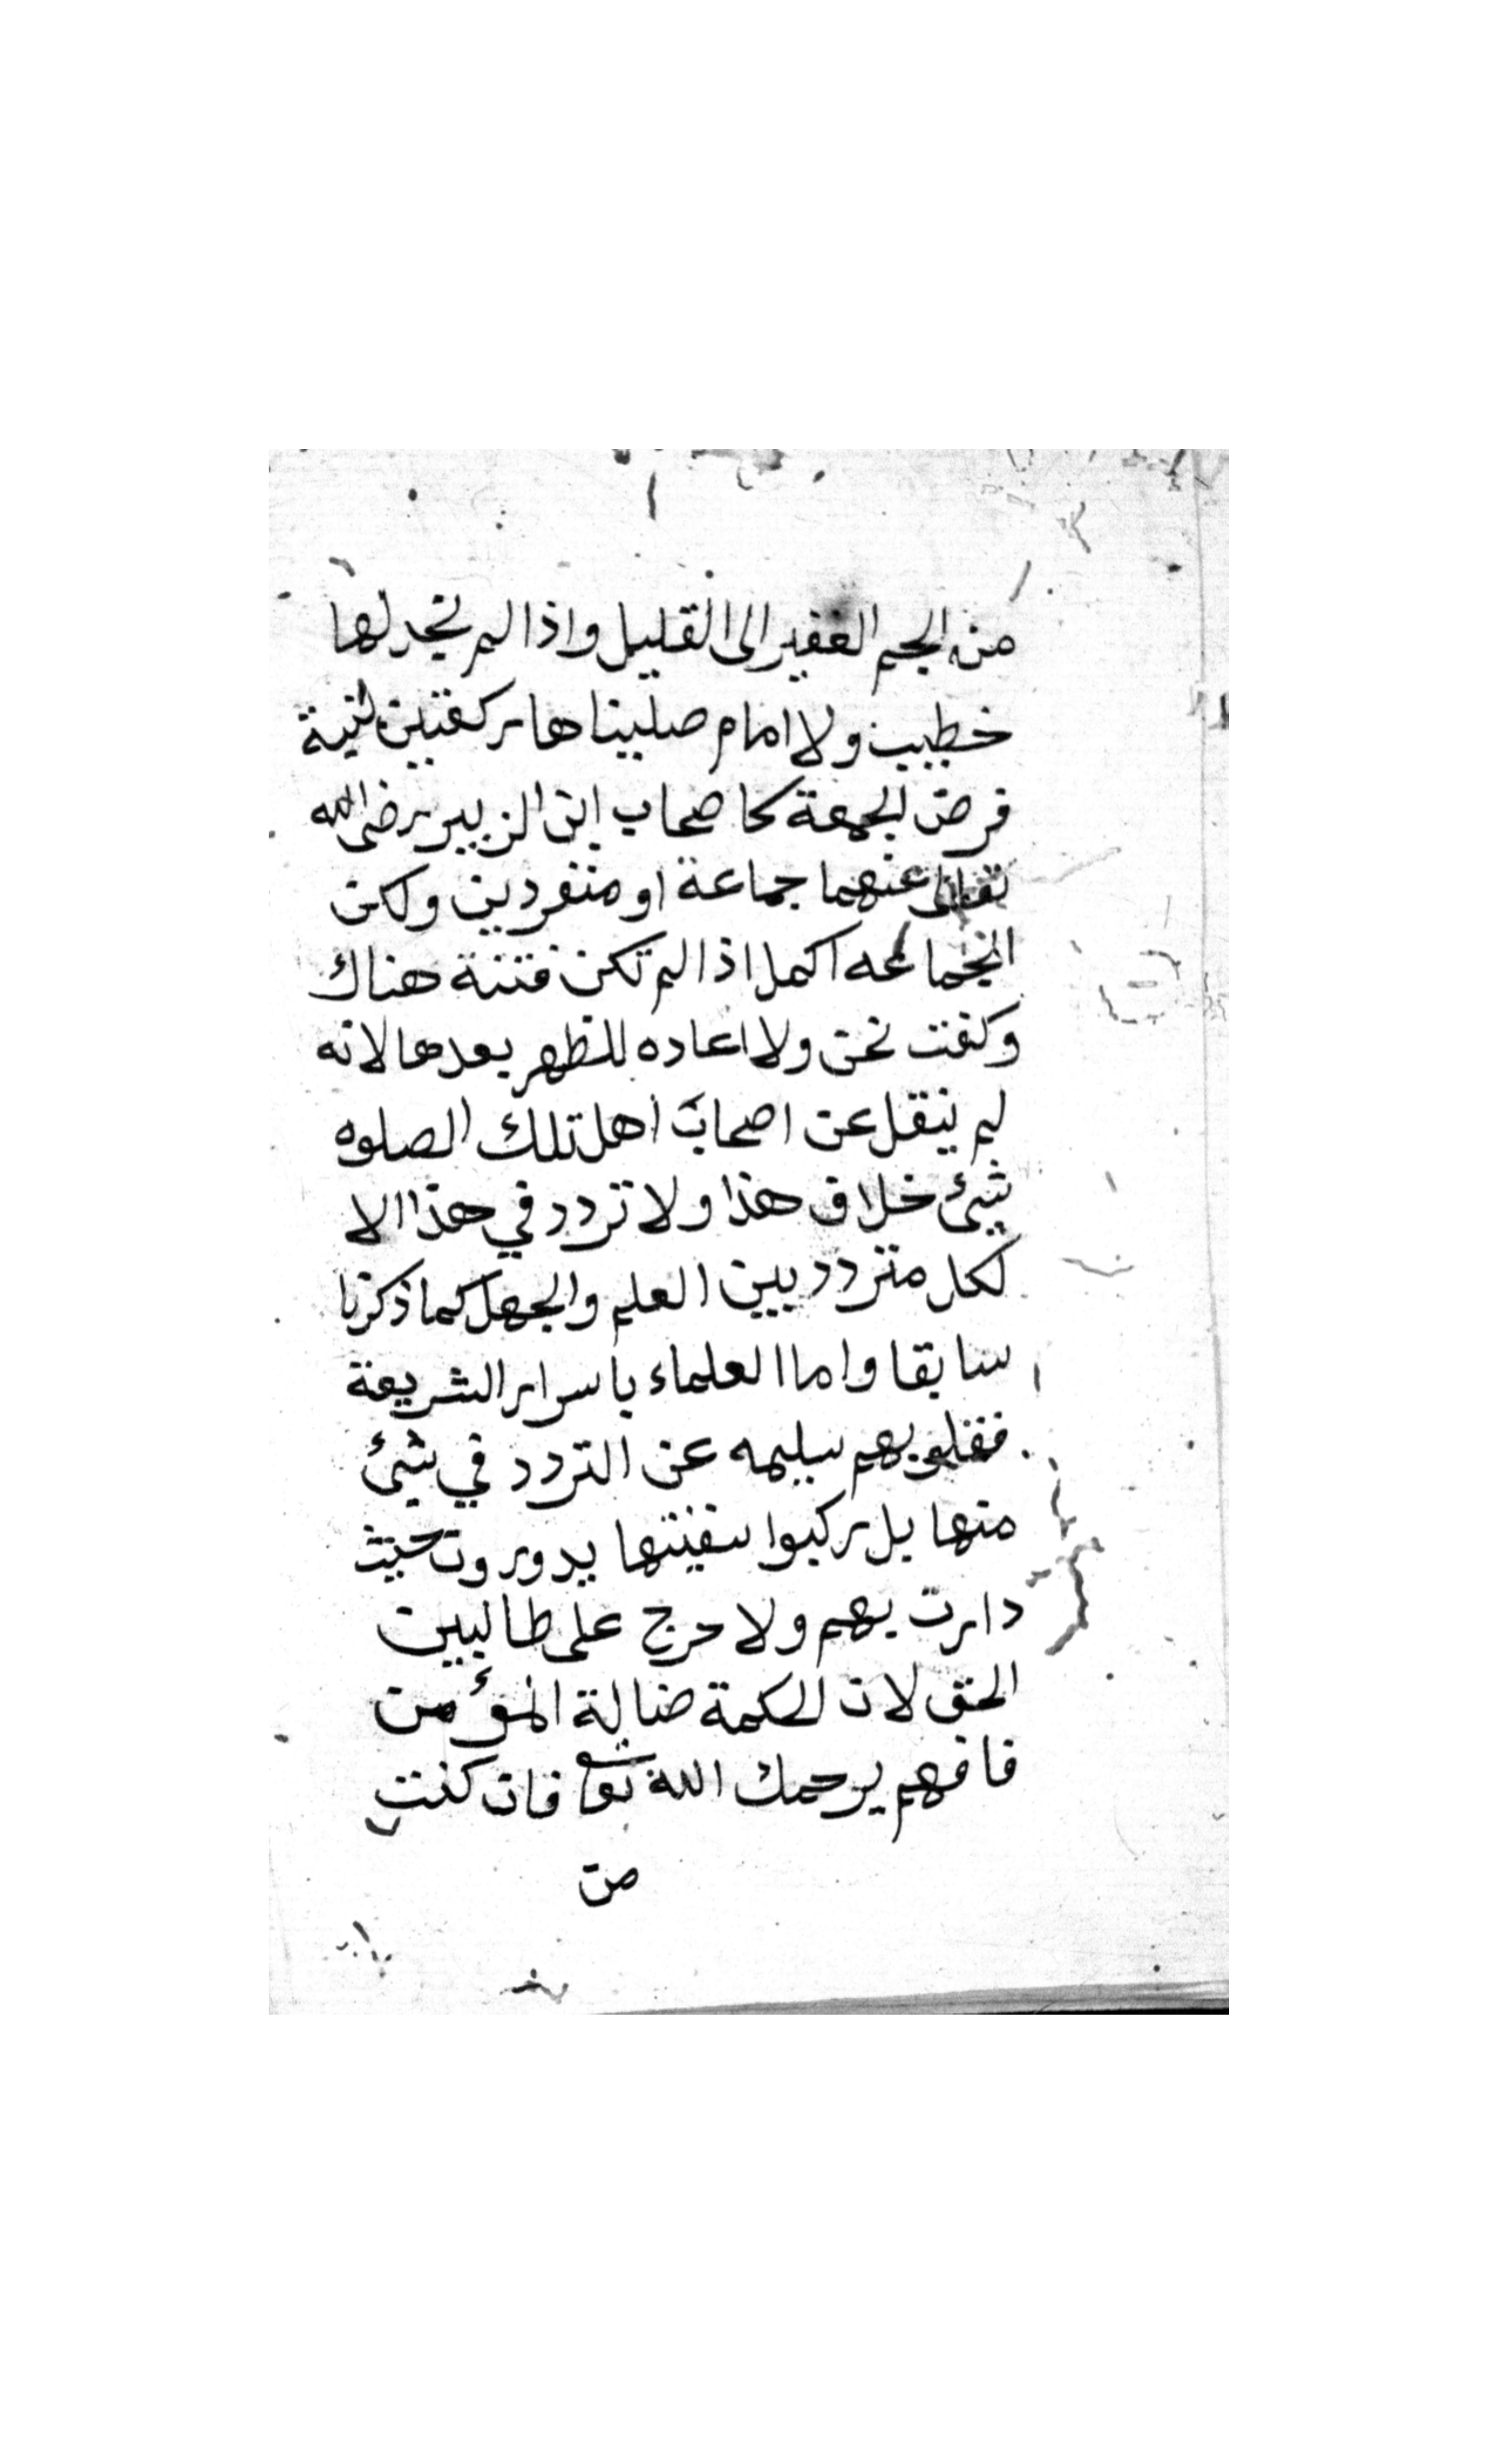 من الجم الغفير الى القليل واذا لم نجد لها
خطيب ولا امام صليناها ركعتين بنية
فرض الجمعة كاصحاب ابن الزبير رضى الله
تعالى عنهما جماعة او منفردين ولكن
الجماعه اكمل اذا لم تكن فتنة هناك
وكفت نحن ولا اعاده للظهر بعدها لانه
لم ينقل عن اصحاب اهل تلك الصلوه
شيئ خلاف هذا ولا تردد في هذا الا
لكل متردد بين العلم والجهل كما ذكرنا
سابقا واما العلماء باسرار الشريعة
فقلوبهم سليمه عن التردد في شيئ
منها بل ركبوا سفينتها يدورون حيث
دارت بهم ولا حرج على طالبين
الحق لان الحكمة ضالة المؤمن
فافهم يرحمك الله تعا فان كنت
من